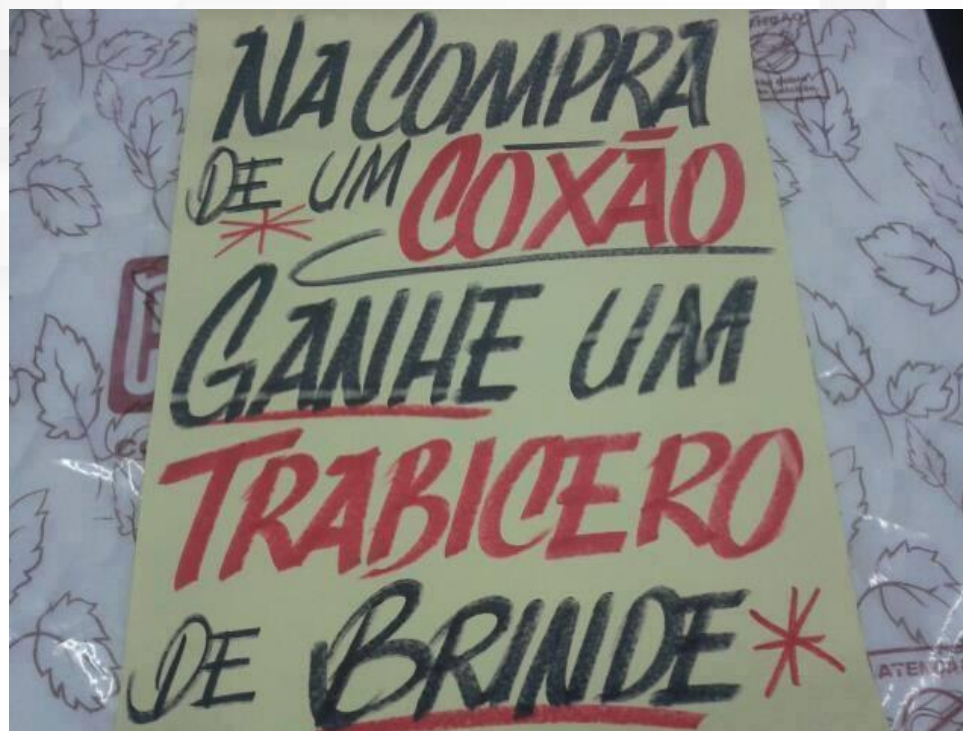 NA COMPRA
DE UM COXÃO
GANHE UM
TRABICERO
DE BRINDE*